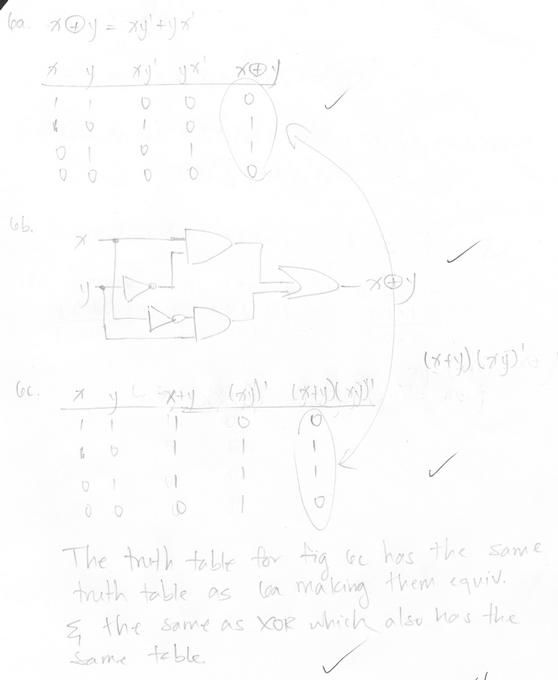 6a. x⊕y = xy' + yx'
x y xy' yx' x⊕y
1 1 0 0 0
1 0 1 0 1
0 1 0 1 1
0 0 0 0 0
6b.
x
y
x⊕y
(x+y)(xy)'
6c. x y x+y (xy)' (x+y)(xy)'
1 1 1 0 0
1 0 1 1 1
0 1 1 1 1
0 0 0 1 0
The truth table for fig 6c has the same
truth table as 6a making them equiv.
& the same as XOR which also has the
same table.